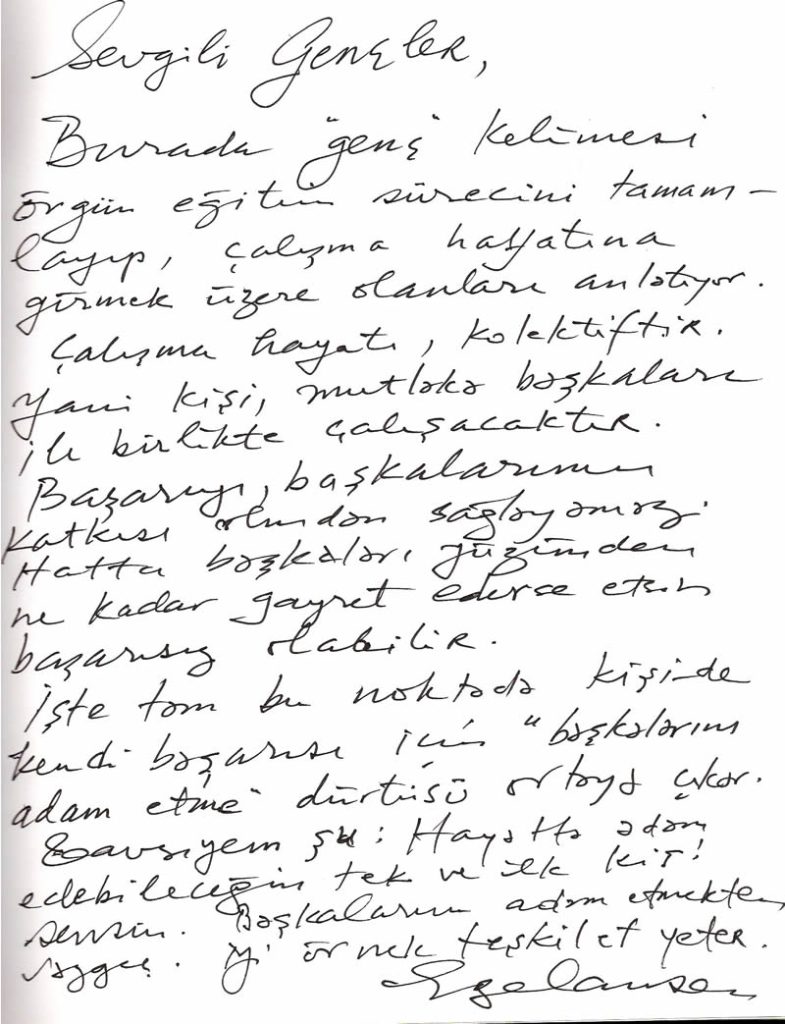 Sevgili Gençler,
Burada "genç" kelimesi
örgün eğitim sürecini tamam-
layıp, çalışma hayatına
girmek üzere olanları anlatıyor.
Çalışma hayatı, kolektiftir.
Yani kişi, mutlaka başkaları
ile birlikte çalışacaktır.
Başarıyı, başkalarının
katkısı olmadan sağlayamaz.
Hatta başkaları yüzünden
ne kadar gayret ederse etsin
başarısız olabilir.
İşte tam bu noktada kişide
kendi başarısı için "başkalarını
adam etme" dürtüsü ortaya çıkar.
Tavsiyem şu: Hayatta adam
edebileceğin tek ve ilk kişi
sensin. Başkalarını adam etmekten
vazgeç. İyi örnek teşkil et yeter.
Ege Cansen